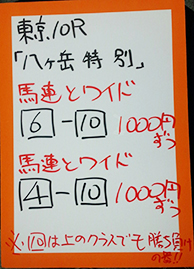 東京10R
「八ヶ岳特別」
馬連とワイド
6-10 1000円ずつ
馬連とワイド
4-10 1000円ずつ
※10は上のクラスでも勝ち負け
の器!!